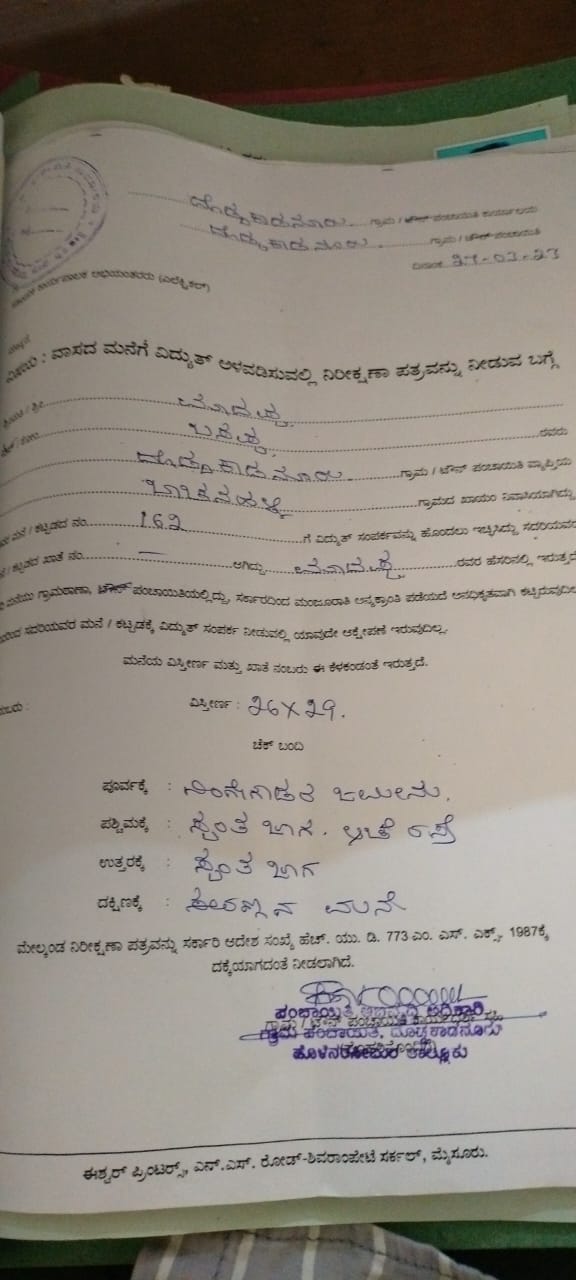 ದೊಡ್ಡಕಾಡನೂರು ಗ್ರಾಮ / ಟೌನ್ ಪಂಚಾಯಿತಿ ಕಾರ್ಯಾಲಯ
ದೊಡ್ಡಕಾಡನೂರು ಗ್ರಾಮ / ಟೌನ್ ಪಂಚಾಯಿತಿ
ದಿನಾಂಕ 27-03-23
ಕಾರ್ಯಪಾಲಕ ಅಭಿಯಂತರರು (ಎಲೆಕ್ಟ್ರಿಕಲ್)
ವಿಷಯ : ವಾಸದ ಮನೆಗೆ ವಿದ್ಯುತ್ ಅಳವಡಿಸುವಲ್ಲಿ ನಿರೀಕ್ಷಣಾ ಪತ್ರವನ್ನು ನೀಡುವ ಬಗ್ಗೆ
ಶ್ರೀಮತಿ / ಶ್ರೀ
ರವರು
ದೊಡ್ಡಕಾಡನೂರು ಗ್ರಾಮ / ಟೌನ್ ಪಂಚಾಯಿತಿ ವ್ಯಾಪ್ತಿಯ
ಗ್ರಾಮದ ಖಾಯಂ ನಿವಾಸಿಯಾಗಿದ್ದು
ಮನೆ / ಕಟ್ಟಡದ ನಂ. 162 ಗೆ ವಿದ್ಯುತ್ ಸಂಪರ್ಕವನ್ನು ಹೊಂದಲು ಇಚ್ಛಿಸಿದ್ದು ಸದರಿಯವರ
/ ಕಟ್ಟಡದ ಖಾತೆ ನಂ. — ಆಗಿದ್ದು ರವರ ಹೆಸರಿನಲ್ಲಿ ಇರುತ್ತದೆ
ಮನೆಯು ಗ್ರಾಮಠಾಣಾ, ಟೌನ್ ಪಂಚಾಯಿತಿಯಲ್ಲಿದ್ದು, ಸರ್ಕಾರದಿಂದ ಮಂಜೂರಾತಿ ಅನ್ಯಕ್ರಾಂತಿ ಪಡೆಯದೆ ಅನಧಿಕೃತವಾಗಿ
ಸದರಿಯವರ ಮನೆ / ಕಟ್ಟಡಕ್ಕೆ ವಿದ್ಯುತ್ ಸಂಪರ್ಕ ನೀಡುವಲ್ಲಿ ಯಾವುದೇ ಆಕ್ಷೇಪಣೆ ಇರುವುದಿಲ್ಲ.
ಮನೆಯ ವಿಸ್ತೀರ್ಣ ಮತ್ತು ಖಾತೆ ನಂಬರು ಈ ಕೆಳಕಂಡಂತೆ ಇರುತ್ತದೆ.
ವಿಸ್ತೀರ್ಣ : 26 X 29.
ಚೆಕ್ ಬಂದಿ
ಪೂರ್ವಕ್ಕೆ : ನಿಂಗೇಗೌಡರ ಜಮೀನು.
ಪಶ್ಚಿಮಕ್ಕೆ : ಸ್ವಂತ ಜಾಗ. ಆಚೆ ರಸ್ತೆ
ಉತ್ತರಕ್ಕೆ : ಸ್ವಂತ ಜಾಗ
ದಕ್ಷಿಣಕ್ಕೆ : ಮನೆ
ಮೇಲ್ಕಂಡ ನಿರೀಕ್ಷಣಾ ಪತ್ರವನ್ನು ಸರ್ಕಾರಿ ಆದೇಶ ಸಂಖ್ಯೆ ಹೆಚ್. ಯು. ಡಿ. 773 ಎಂ. ಎಸ್. ಎಕ್ಸ್. 1987ಕ್ಕೆ
ದಕ್ಕೆಯಾಗದಂತೆ ನೀಡಲಾಗಿದೆ.
ಪಂಚಾಯಿತಿ ಅಭಿವೃದ್ಧಿ ಅಧಿಕಾರಿ
ಗ್ರಾಮ / ಟೌನ್ ಪಂಚಾಯಿತಿ
ಗ್ರಾಮ ಪಂಚಾಯಿತಿ, ದೊಡ್ಡಕಾಡನೂರು
ಹೊಳೆನರಸೀಪುರ ತಾಲ್ಲೂಕು
ಈಶ್ವರ್ ಪ್ರಿಂಟರ್ಸ್, ಎನ್.ಎಸ್. ರೋಡ್-ಶಿವರಾಂಪೇಟೆ ಸರ್ಕಲ್, ಮೈಸೂರು.